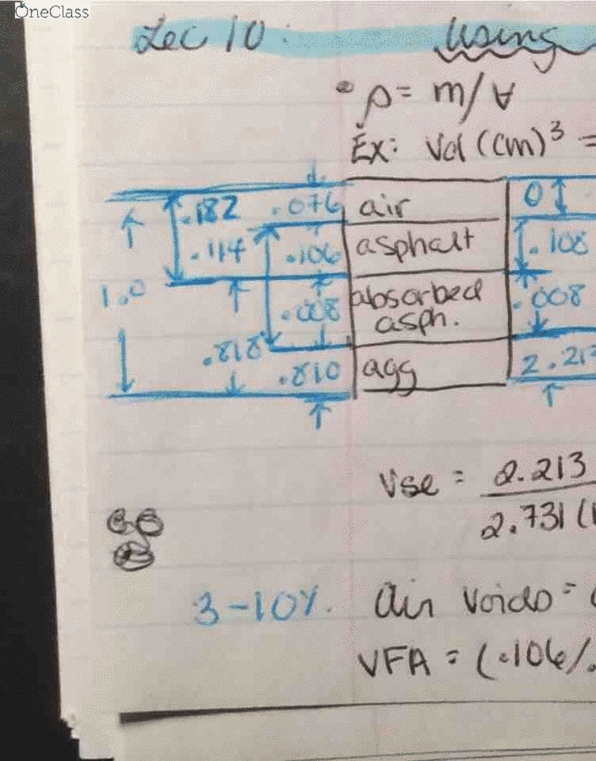 OneClass
Lec 10: Using
• ρ = m/V
Ex: Vol (cm)³ =
.182 .076 air 0
.114 .106 asphalt .108
1.0 .008 absorbed asph. .008
.818 .810 agg 2.213
Vse = 2.213
2.731 (
3-10%. Air Voids =
VFA = (.106/.